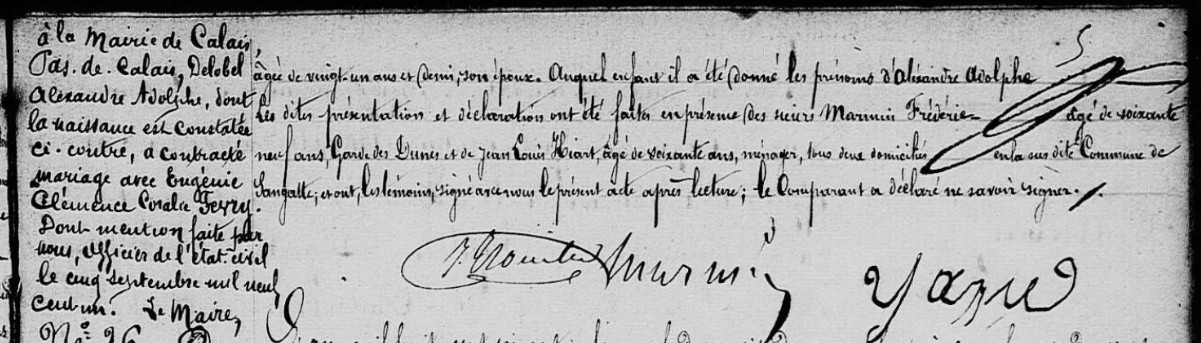 à la Mairie de Calais,
Pas-de-Calais, Delobel
Alexandre Adolphe, dont
la naissance est constatée
ci-contre, a contracté
mariage avec Eugénie
Clémence Coralie Ferry.
Dont mention faite par
nous, officier de l'état-civil
le cinq septembre mil neuf
cent-un. Le Maire,
âgée de vingt-un ans et demi, son épouse. Auquel enfant il a été donné les prénoms d'Alexandre Adolphe
Les dites présentation et déclaration ont été faites en présence des sieurs Marmin Frédéric âgé de soixante
neuf ans, Garde des Dunes et de Jean Louis Hiart, âgé de soixante ans, ménager, tous deux domiciliés en la sus dite Commune de
Sangatte; et ont, les témoins, signé avec nous le présent acte après lecture; le Comparant a déclaré ne savoir signer.
Marmin